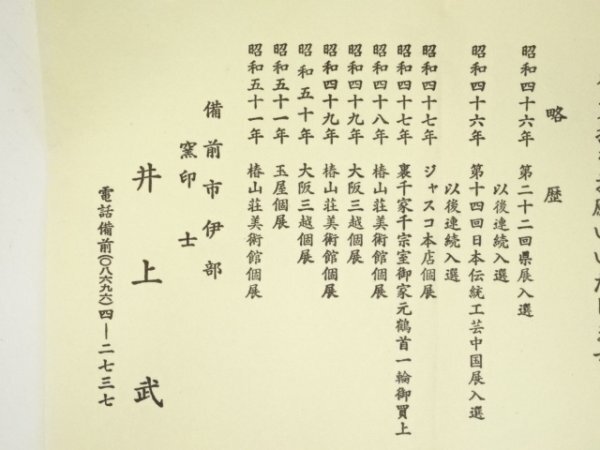 略歴
昭和四十六年 第二十二回県展入選
以後連続入選
昭和四十六年 第十四回日本伝統工芸中国展入選
以後連続入選
昭和四十七年 ジャスコ本店個展
昭和四十七年 裏千家千宗室御家元鶴首一輪御買上
昭和四十八年 椿山荘美術館個展
昭和四十九年 大阪三越個展
昭和四十九年 椿山荘美術館個展
昭和五十年 大阪三越個展
昭和五十一年 玉屋個展
昭和五十一年 椿山荘美術館個展
備前市伊部
窯印 士
井上武
電話備前(〇八六九六)四―二七三七